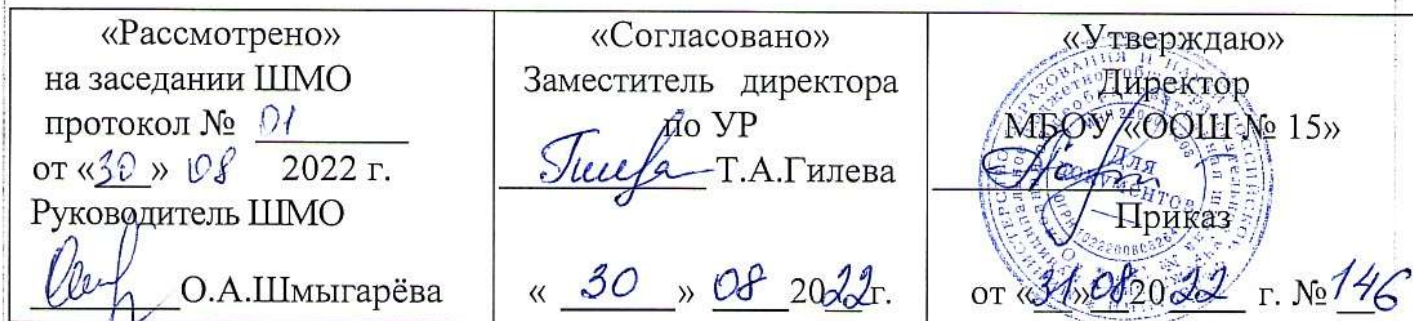 «Рассмотрено»
на заседании ШМО
протокол № 01
от «30» 08 2022 г.
Руководитель ШМО
О.А.Шмыгарёва
«Согласовано»
Заместитель директора
по УР
Т.А.Гилева
« 30 » 08 2022г.
«Утверждаю»
Директор
МБОУ «ООШ № 15»
Для
документов
Приказ
от «31» 08 2022 г. № 146